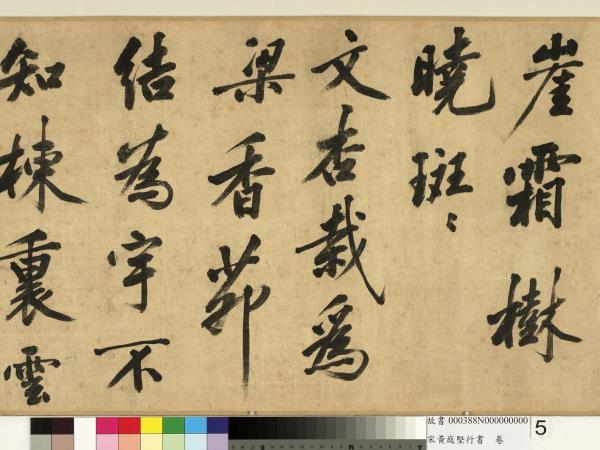 崖霜樹
曉斑〻
文杏栽爲
梁香茆
結為宇不
知棟裏雲
故書 000388N000000000
宋黃庭堅行書　卷
5